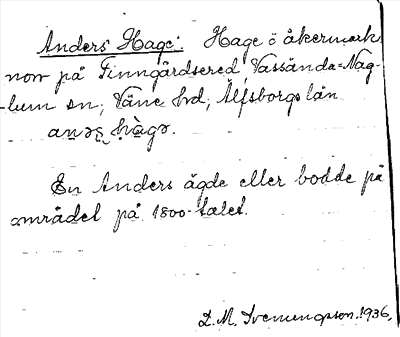 Anders' Hage: Hage o åkermark
norr på Finngårdsered, Vassända-Nag-
lum sn, Väne hd, Älfsborgs län
En Anders ägde eller bodde på
området på 1800-talet.
D. M. 1936.